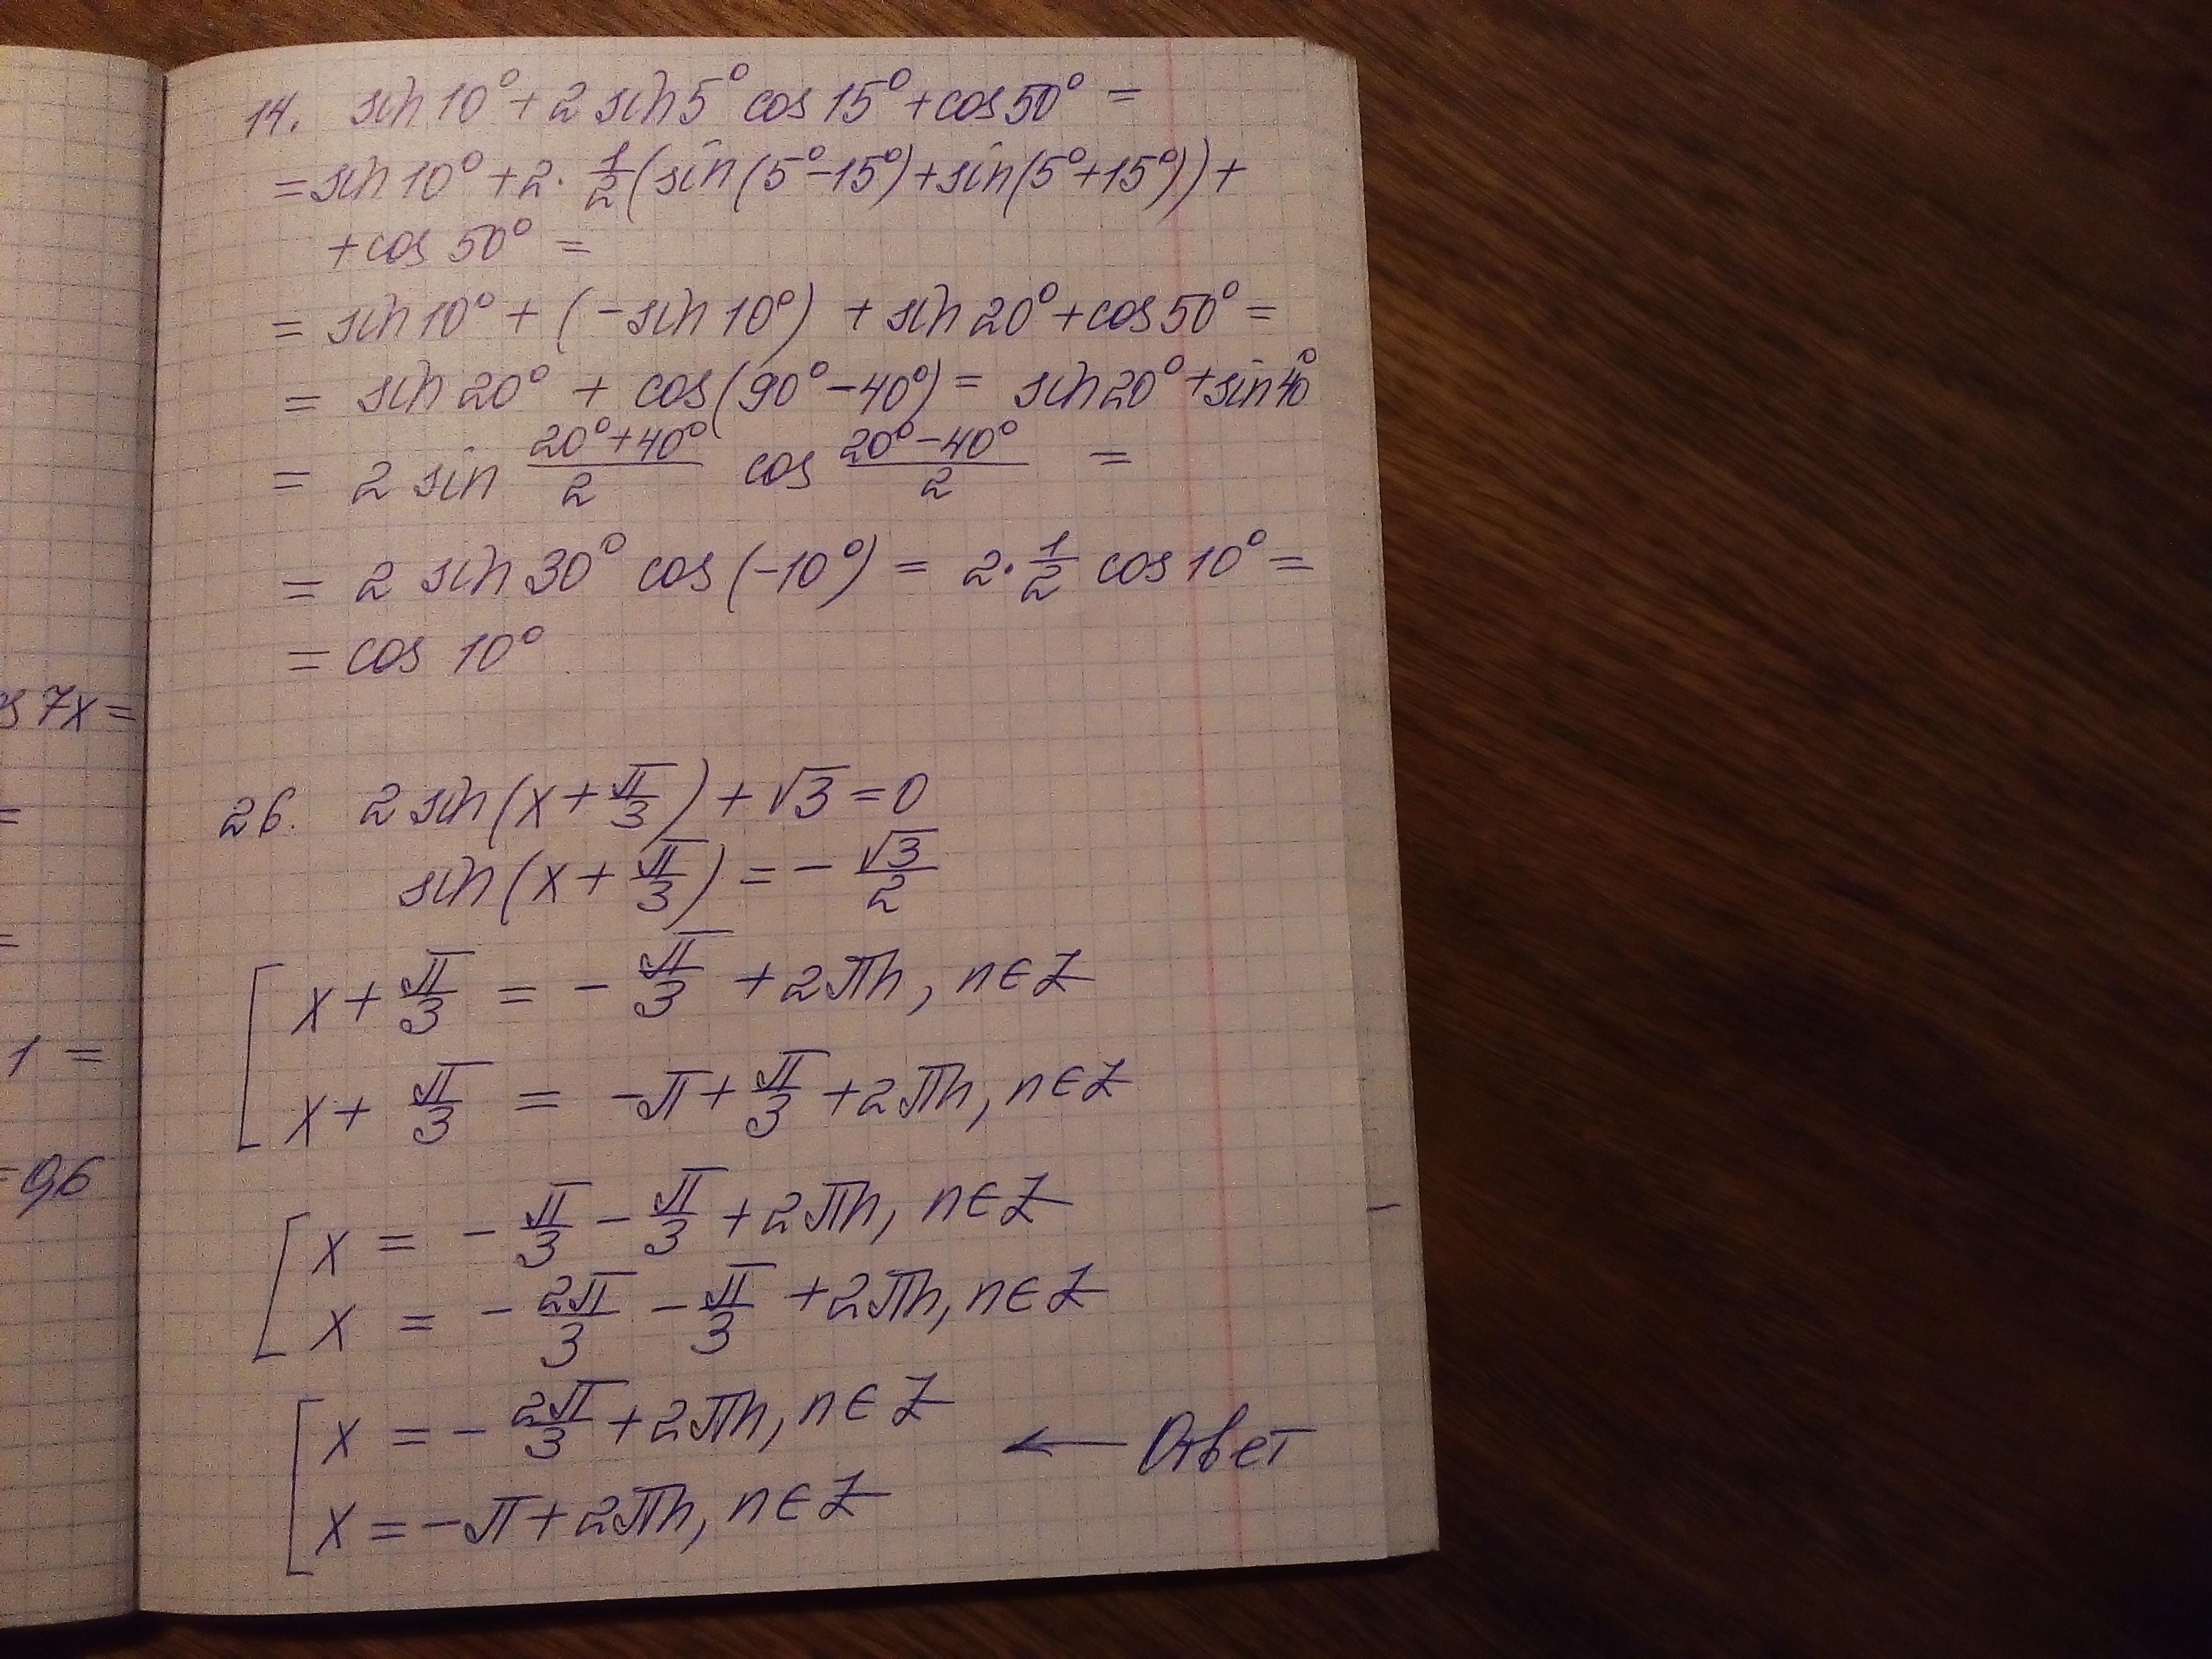 14. sin 10° + 2 sin 5° cos 15° + cos 50° =
= sin 10° + 2 · 1/2 (sin (5° - 15°) + sin (5° + 15°)) +
+ cos 50° =
= sin 10° + (- sin 10°) + sin 20° + cos 50° =
= sin 20° + cos (90° - 40°) = sin 20° + sin 40°
= 2 sin (20° + 40°)/2 cos (20° - 40°)/2 =
= 2 sin 30° cos (-10°) = 2 · 1/2 cos 10° =
= cos 10°
s 7x =
26. 2 sin (x + π/3) + √3 = 0
=
sin (x + π/3) = - √3/2
=
[ x + π/3 = - π/3 + 2πn, n ∈ Z
1 =
x + π/3 = - π + π/3 + 2πn, n ∈ Z
= 0,6
[ x = - π/3 - π/3 + 2πn, n ∈ Z
x = - 2π/3 - π/3 + 2πn, n ∈ Z
[ x = - 2π/3 + 2πn, n ∈ Z ← Ответ
x = - π + 2πn, n ∈ Z